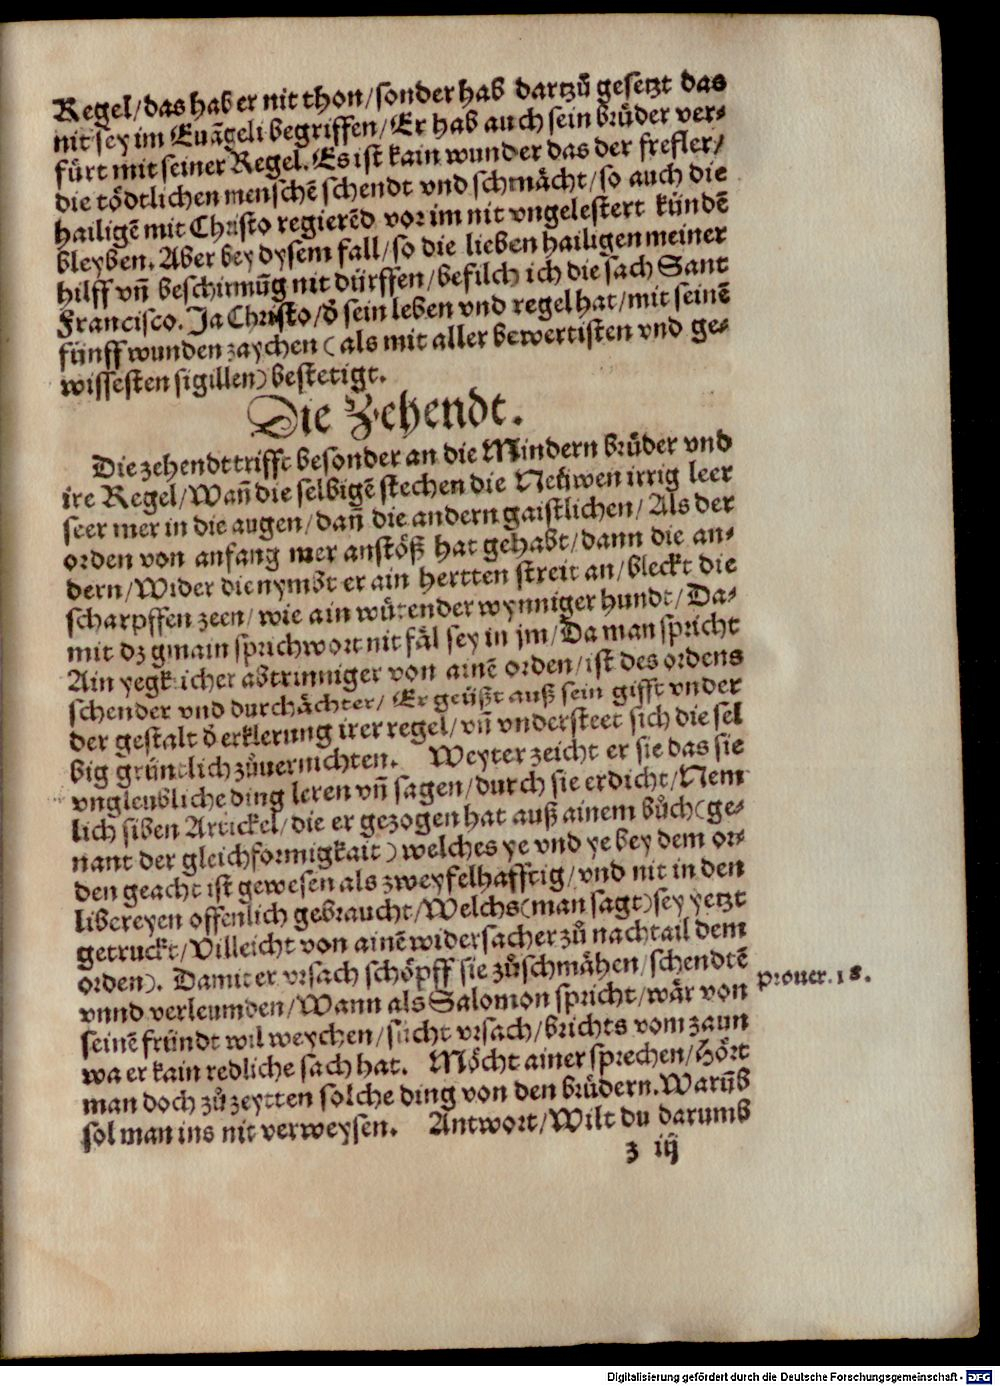 Regel/das hab er nit thon/sonder hab dartzů gesetzt das
nit sey im Euãgeli begriffen/Er hab auch sein brůder ver⸗
fürt mit seiner Regel. Es ist kain wunder das der frefler/
die tödtlichen menschẽ schendt vnd schmächt/so auch die
hailigẽ mit Christo regierẽd vor im nit vngelestert kündẽ
bleyben. Aber bey dysem fall/so die lieben hailigen meiner
hilff vñ beschirmũg nit dürffen/befilch ich die sach Sant
Francisco. Ja Christo/d̕ sein leben vnd regel hat/mit seinẽ
fünff wunden zaychen (als mit aller bewertisten vnd ge⸗
wissesten sigillen) bestetigt.
Die Zehendt.
Die zehendt trifft besonder an die Mindern brůder vnd
ire Regel/Wañ die selbigẽ stechen die Neüwen irrig leer
seer mer in die augen/dañ die andern gaistlichen/Als der
orden von anfang mer anstöß hat gehabt/dann die an⸗
dern/Wider die nymbt er ain hertten streit an/bleckt die
scharpffen zeen/wie ain wůtender wynniger hundt/Da⸗
mit dz gmain sprichwort nit fäl sey in jm/Da man spricht
Ain yegklicher abtrinniger von ainẽ orden/ist des ordens
schender vnd durchächter/Er geüßt auß sein gifft vnder
der gestalt d̕ erklerung irer regel/vñ vndersteet sich die sel
big gründlich zůuernichten. Weyter zeicht er sie das sie
vngleubliche ding leren vñ sagen/durch sie erdicht/Nem
lich siben Artickel/die er gezogen hat auß ainem bůch (ge⸗
nant der gleichformigkait) welches ye vnd ye bey dem or⸗
den geacht ist gewesen als zweyfelhafftig/vnd nit in den
libereyen offenlich gebraucht/Welchs (man sagt) sey yetzt
getruckt/Villeicht von ainẽ widersacher zů nachtail dem
orden). Damit er vrsach schöpff sie zůschmähen/schendtẽ
vnnd verleumden/Wann als Salomon spricht/wär von
seinẽ fründt wil weychen/sücht vrsach/brichts vom zaun
wa er kain redliche sach hat. Möcht ainer sprechen/Hört
man doch zů zeytten solche ding von den brůdern. Warũb
sol man ins nit verweysen. Antwort/Wilt du darumb
z iij
prouer. 18.
Digitalisierung gefördert durch die Deutsche Forschungsgemeinschaft - DFG